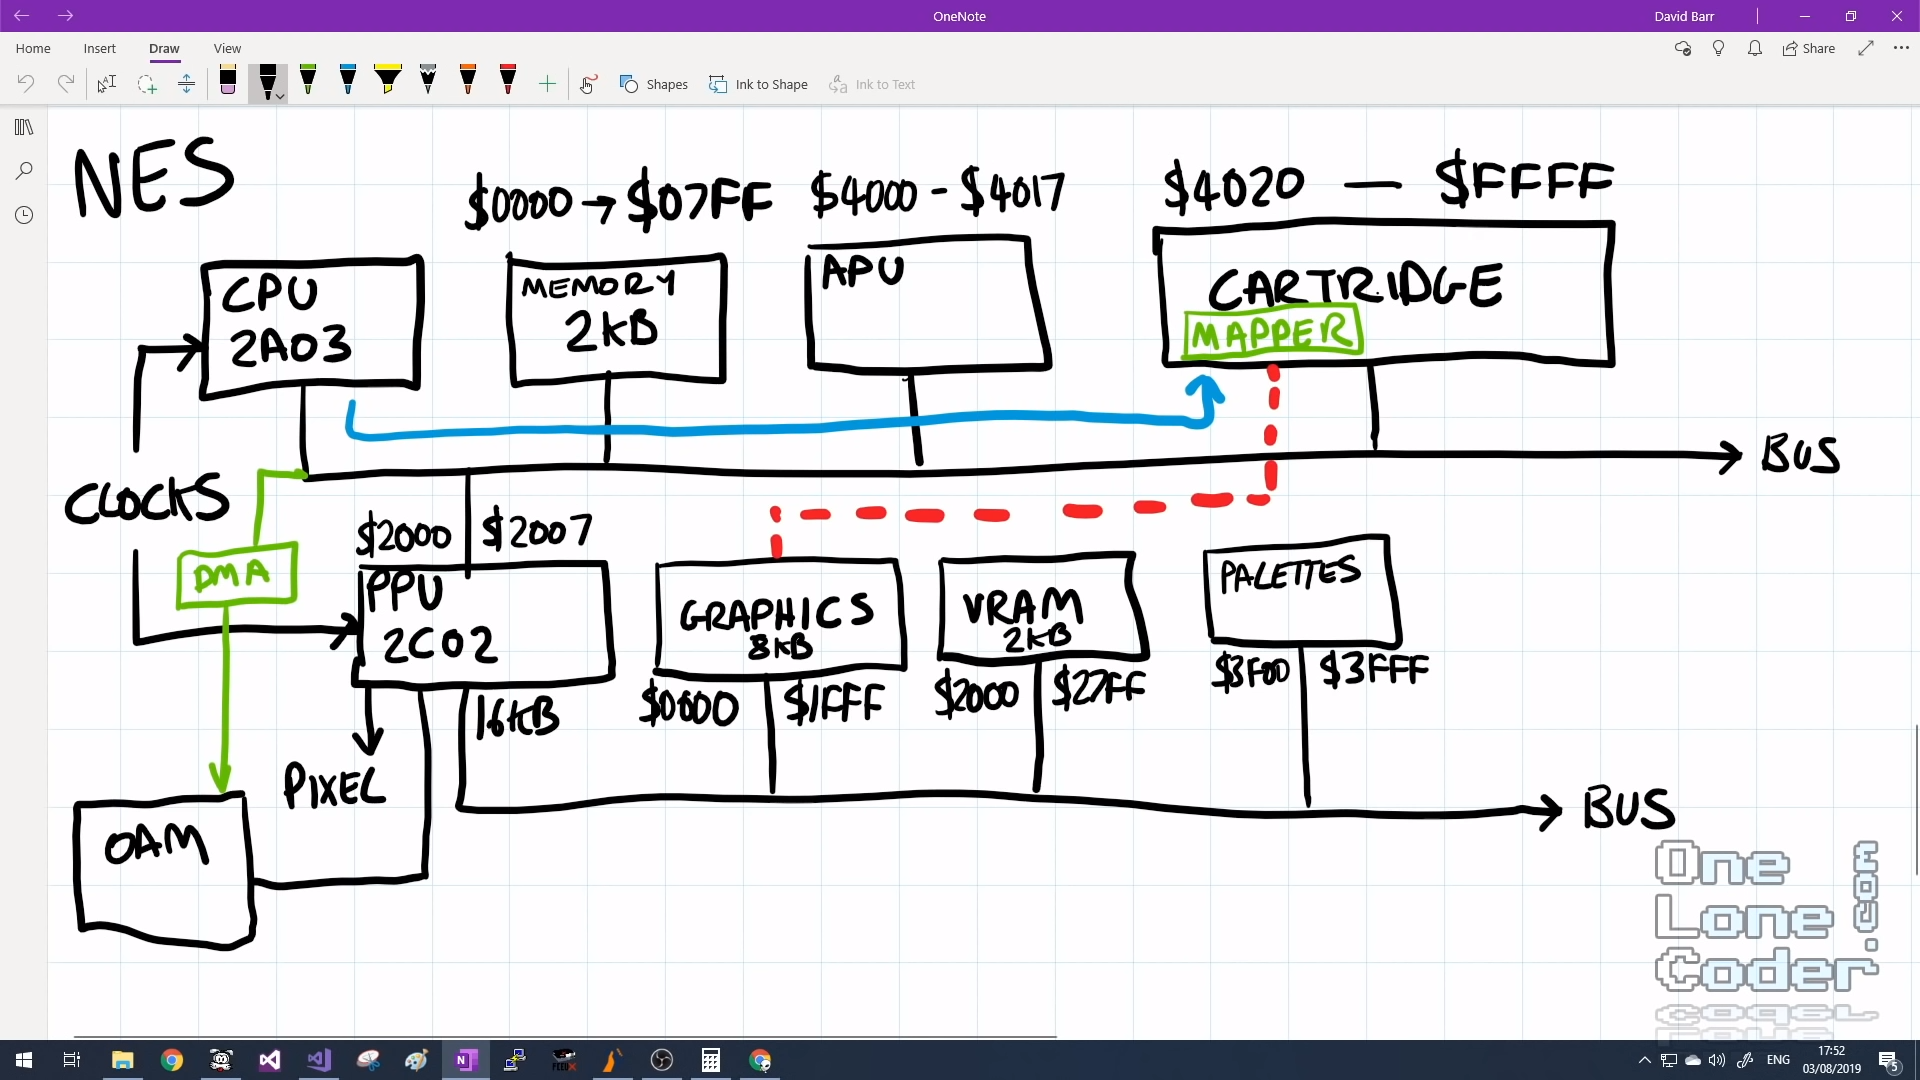 OneNote
David Barr
Home Insert Draw View
Share
Shapes
Ink to Shape
Ink to Text
NES
$0000 → $07FF
$4000 - $4017
$4020 — $FFFF
CPU
2A03
MEMORY
2KB
APU
CARTRIDGE
MAPPER
BUS
CLOCKS
DMA
$2000 $2007
PPU
2C02
GRAPHICS
8KB
VRAM
2KB
PALETTES
$0000 $1FFF
$2000 $27FF
$3F00 $3FFF
16KB
PIXEL
OAM
BUS
One
Lone
Coder
.com
ENG
17:52
03/08/2019
5